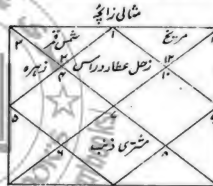 شمالی زائچہ
۳ شمس قمر ۱ مریخ
۲ زحل عطارد راس ۱۲
زہرہ ۴ ۱۰
۵ ۷
مشتری ذنب
۶ ۸